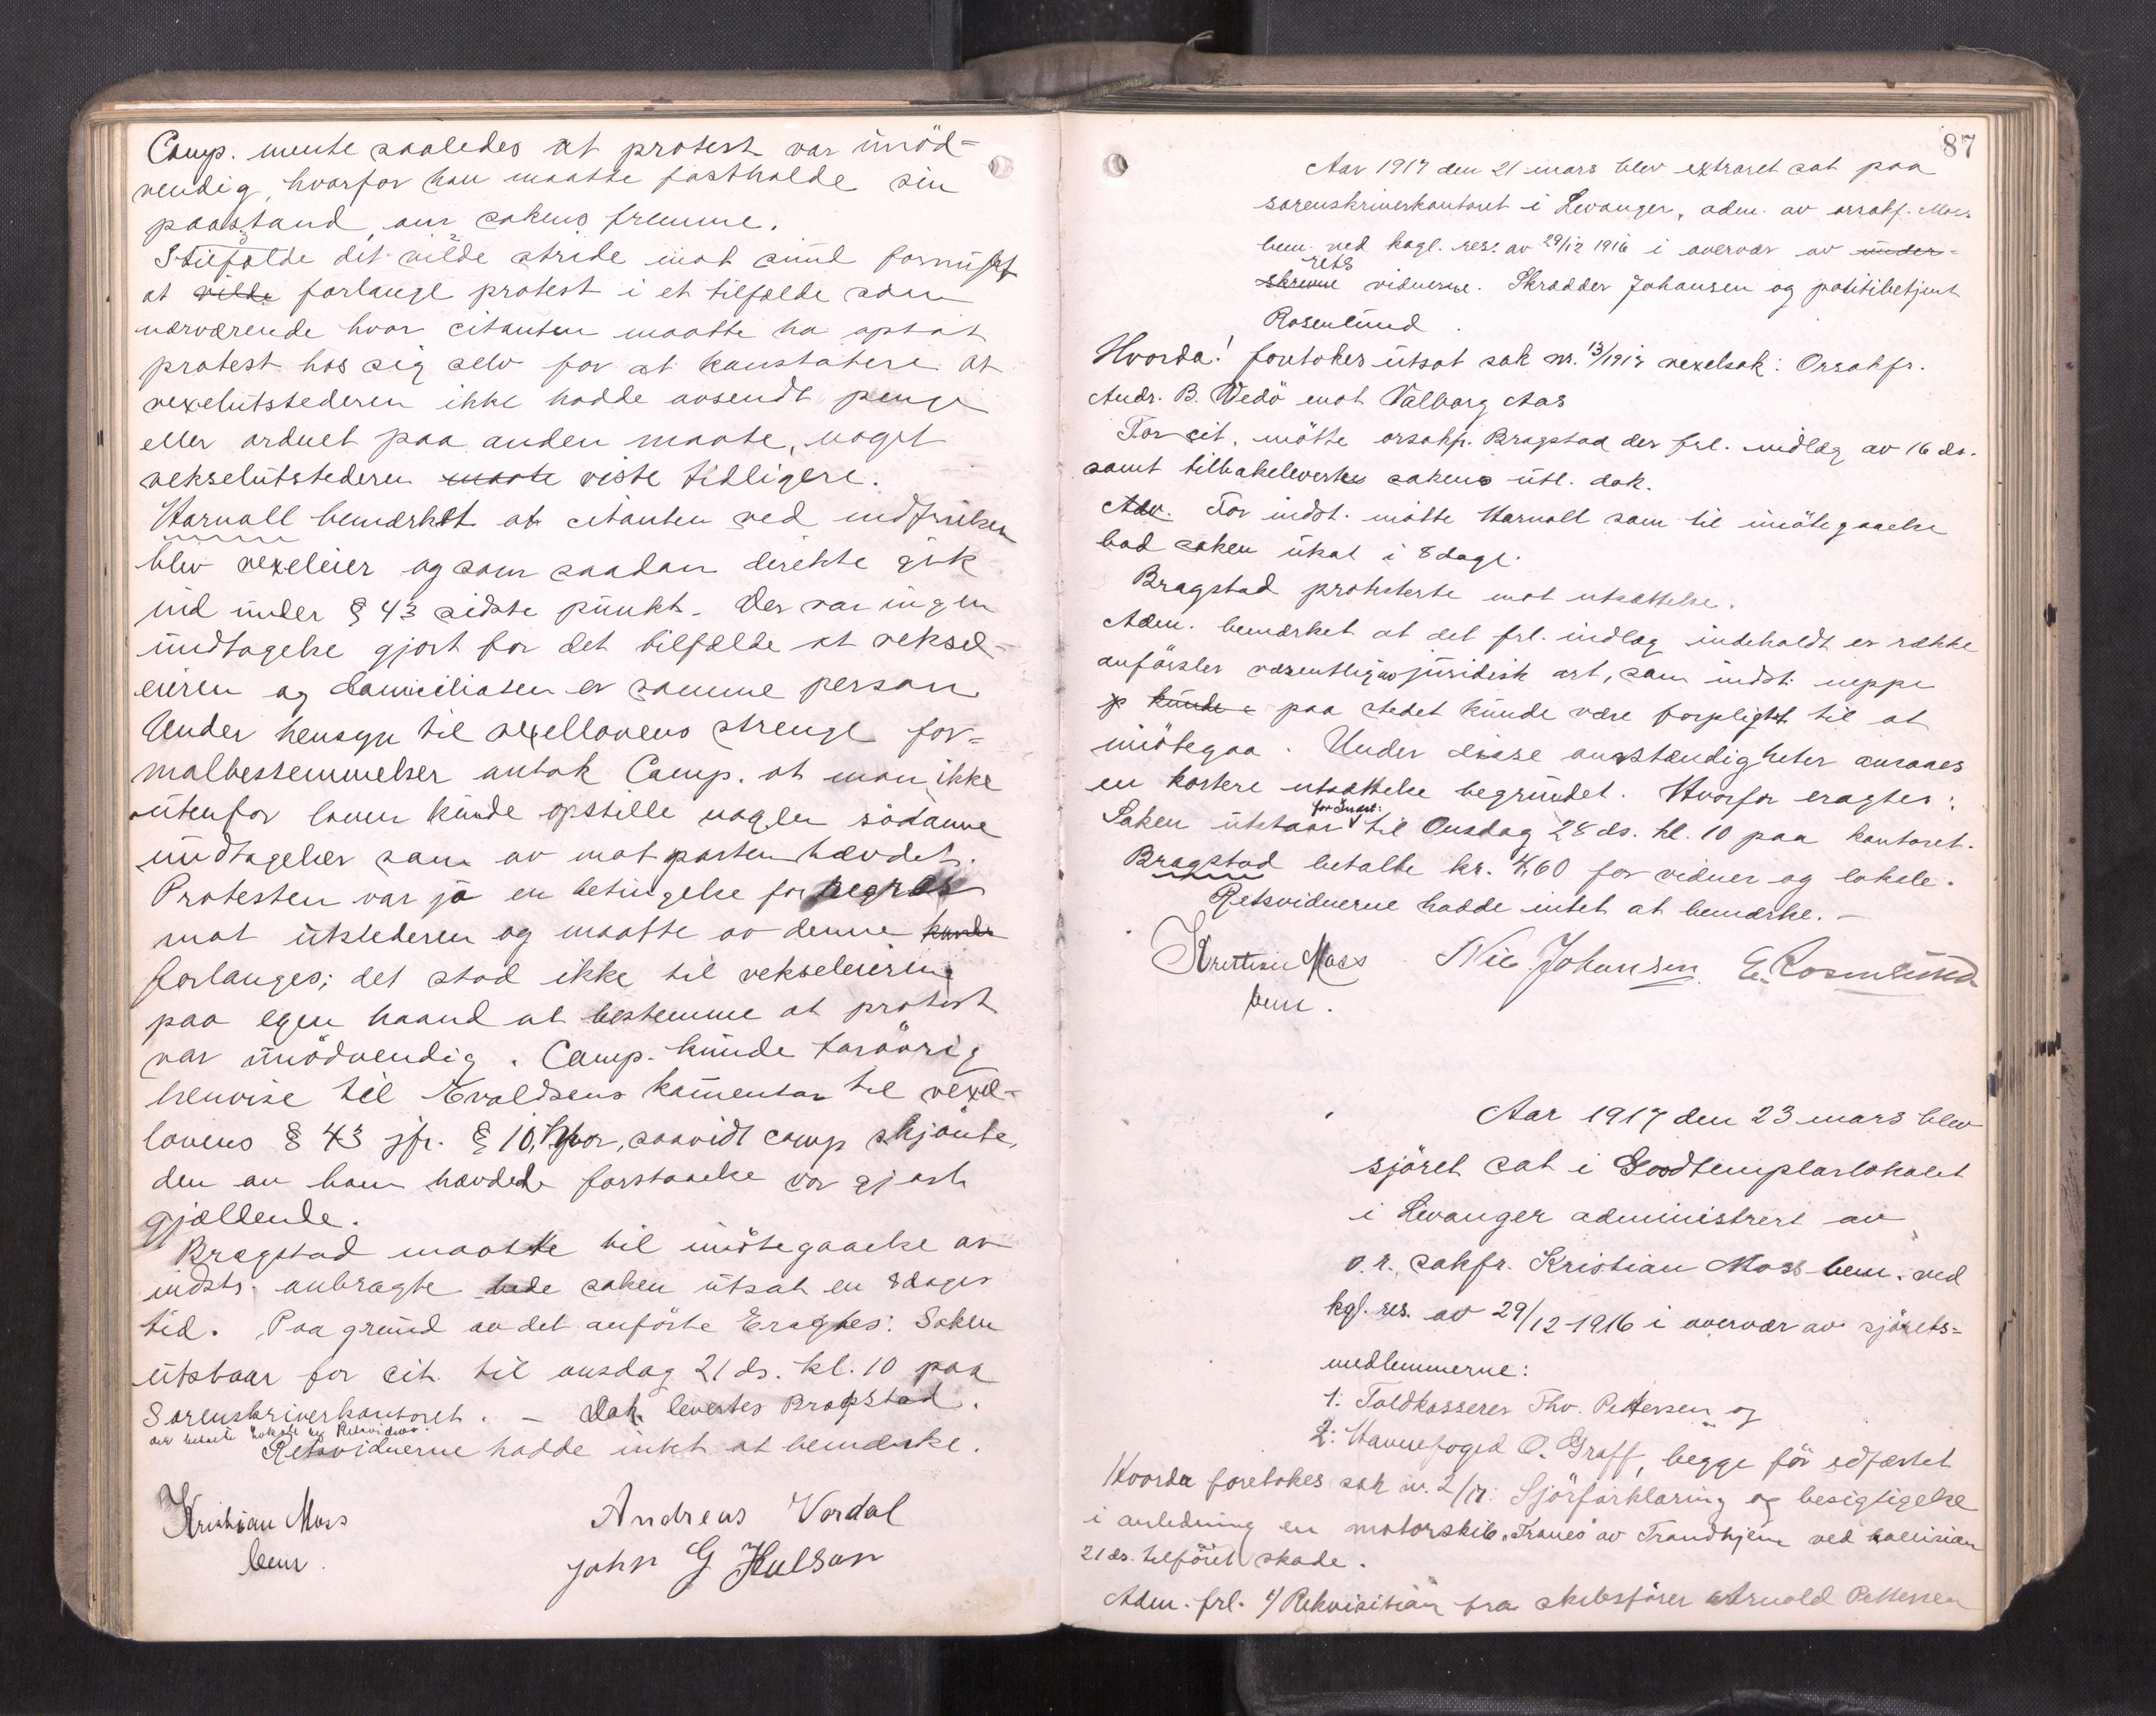 Comp. mente saaledes at protest var unöd-
vendig, hvorfor han maatte fastholde sin
paastand om sakens fremme.
I tilfælde det vilde stride mot sund fornuft
at vilde forlange protest i et tilfælde som
nærværende hvor citanten maatte ha optat
protest hos sig selv for at konstatere at
vexelutstederen ikke hadde avsendt penge
eller ordnet paa anden maate, noget
vekselutstederen maate viste tidligere.
Harvall bemærket at citanten ved indfrielsen
blev vexeleier og som saadan direkte gik
ind under § 43 sidste punkt. Der var ingen
undtagelse gjort for det tilfælde at veksel-
eieren og domiciliaten er samme person
Under hensyn til vexellovens strenge for-
malbestemmelser antok Comp. at man ikke
utenfor loven kunde opstille nogen sådanne
undtagelser som av motparten hævdet.
Protesten var jo en betingelse for regres
mot utstederen og maatte av denne kunde
forlanges; det stod ikke til vekseleieren
paa egen haand at bestemme at protest
var unödvendig. Comp. kunde forövrig
henvise til Evaldsens komentar til vexel-
lovens § 43 jfr. § 10, hvor, saavidt comp skjönte,
den av ham hævdede forstaaelse var gjort
gjældende.
Bragstad maatte til imötegaaelse av
indst. anbragte bede saken utsat en 8 dages
tid. Paa grund av det anförte Eragtes: Saken
utstaar for cit. til onsdag 21 ds. kl. 10 paa
Sorenskriverkontoret. – Dok. levertes Bragstad.
der betalte lokale og Retsvidner.
Retsvidnerne hadde intet at bemærke.
Kristian Moss
bem.
Andreas Vordal
John G Hulsan
87
Aar 1917 den 21 mars blev extraret sat paa
sorenskriverkontoret i Levanger, adm. av orsakf. Moss
bem. ved kogl. res. av 29/12 1916 i overvær av under-
skrevne rets vidnerne. Skrædder Johansen og politibetjent
Rosenlund.
Hvorda! foretokes utsat sak nr. 13/1917 vexelsak: Orsakfr.
Andr. B. Vedö mot Valborg Aas
For cit. mötte orsakfr. Bragstad der frl. indlæg av 16 ds.
samt tilbakeleverte sakens utl. dok.
Adv. For indst. mötte Harvall som til imötegaaelse
bad saken utsat i 8 dage.
Bragstad protesterte mot utsættelse.
Adm. bemærket at det frl. indlæg indeholdt en række
anförsler væsentlig av juridisk art, som indst. neppe
p kunde paa stedet kunde være forpligtet til at
imötegaa. Under disse omstændigheter ansaaes
en kortere utsættelse begrundet. Hvorfor eragtes:
Saken utstaar for Indst: til Onsdag 28 ds. kl. 10 paa kontoret.
Bragstad betalte kr. 4,60 for vidner og lokale.
Retsvidnerne hadde intet at bemærke. –
Kristian Moss Nic Johansen E. Rosenlund
bem.
Aar 1917 den 23 mars blev
sjöret sat i Goodtemplarlokalet
i Levanger administrert av
o.r. sakfr. Kristian Moss bem. ved
kgl. res. av 29/12 1916 i overvær av sjörets-
medlemmerne:
1: Toldkasserer Thv. Pettersen og
2: Havnefoged O. Graff, begge för edfæstet
Hvorda foretokes sak nr. 2/17: Sjöforklaring og besigtigelse
i anledning en motorskib "Tranes" av Trondhjem ved kollision
21 ds. tilföiet skade.
Adm. frl. 1) Rekvisition fra skibsförer Arnold Pettersen